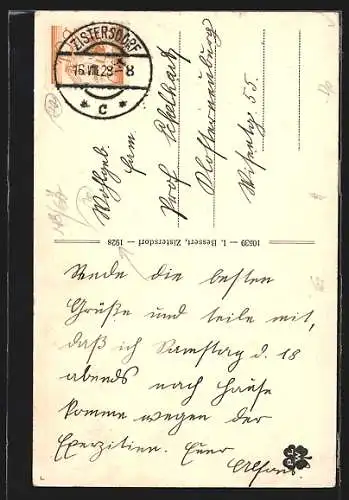 ZISTERSDORF
16.VIII.28-8
* c *
Wohlgeb.
Fam.
Prof
Klosterneuburg
55.
10639 — L. Bessert, Zistersdorf — 1928
Sende die besten
Grüße und teile mit,
daß ich Samstag d. 18
abends nach Hause
komme wegen der
Exerzitien. Euer
Alfons.